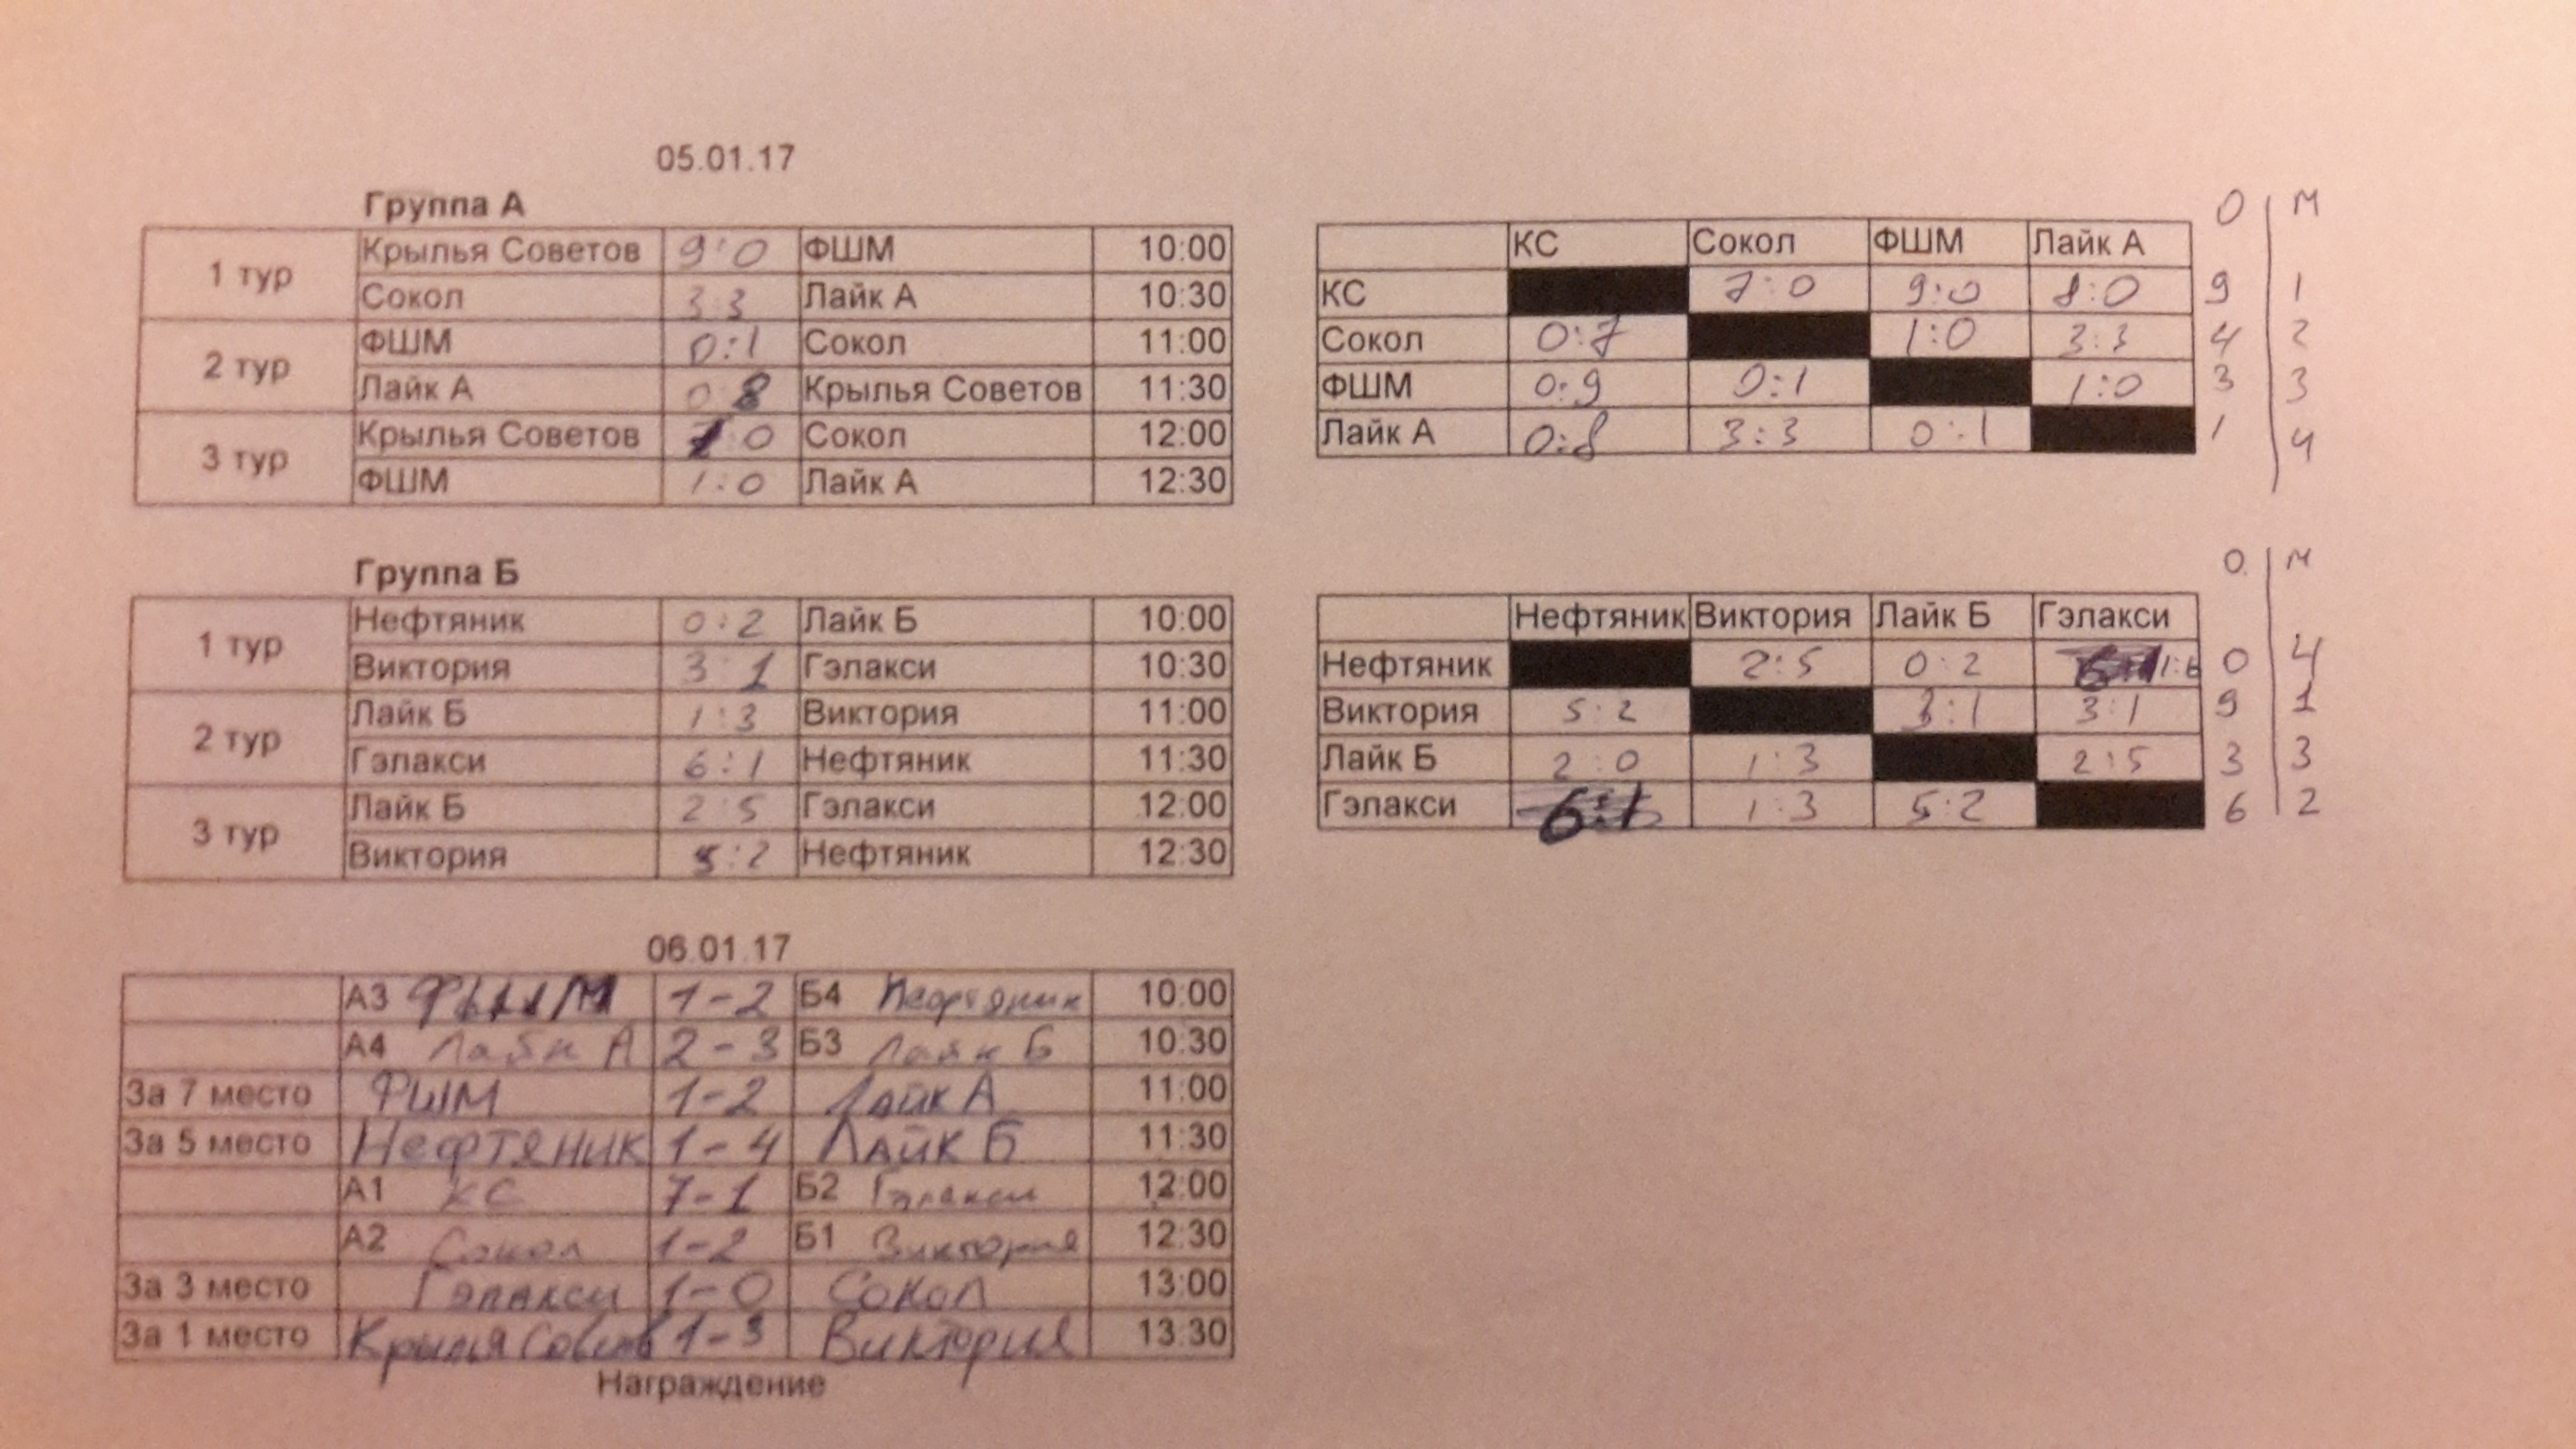 05.01.17
Группа А
1 тур Крылья Советов 9:0 ФШМ 10:00
Сокол 3:3 Лайк А 10:30
2 тур ФШМ 0:1 Сокол 11:00
Лайк А 0:8 Крылья Советов 11:30
3 тур Крылья Советов 7:0 Сокол 12:00
ФШМ 1:0 Лайк А 12:30
О М
КС Сокол ФШМ Лайк А
КС 7:0 9:0 8:0 9 1
Сокол 0:7 1:0 3:3 4 2
ФШМ 0:9 0:1 1:0 3 3
Лайк А 0:8 3:3 0:1 1 4
Группа Б
1 тур Нефтяник 0:2 Лайк Б 10:00
Виктория 3:1 Гэлакси 10:30
2 тур Лайк Б 1:3 Виктория 11:00
Гэлакси 6:1 Нефтяник 11:30
3 тур Лайк Б 2:5 Гэлакси 12:00
Виктория 5:2 Нефтяник 12:30
О. М
Нефтяник Виктория Лайк Б Гэлакси
Нефтяник 2:5 0:2 1:6 0 4
Виктория 5:2 3:1 3:1 9 1
Лайк Б 2:0 1:3 2:5 3 3
Гэлакси 6:1 1:3 5:2 6 2
06.01.17
А3 ФШМ 1-2 Б4 Нефтяник 10:00
А4 Лайк А 2-3 Б3 Лайк Б 10:30
За 7 место ФШМ 1-2 Лайк А 11:00
За 5 место Нефтяник 1-4 Лайк Б 11:30
А1 КС 7-1 Б2 Гэлакси 12:00
А2 Сокол 1-2 Б1 Виктория 12:30
За 3 место Гэлакси 1-0 Сокол 13:00
За 1 место Крылья Советов 1-3 Виктория 13:30
Награждение